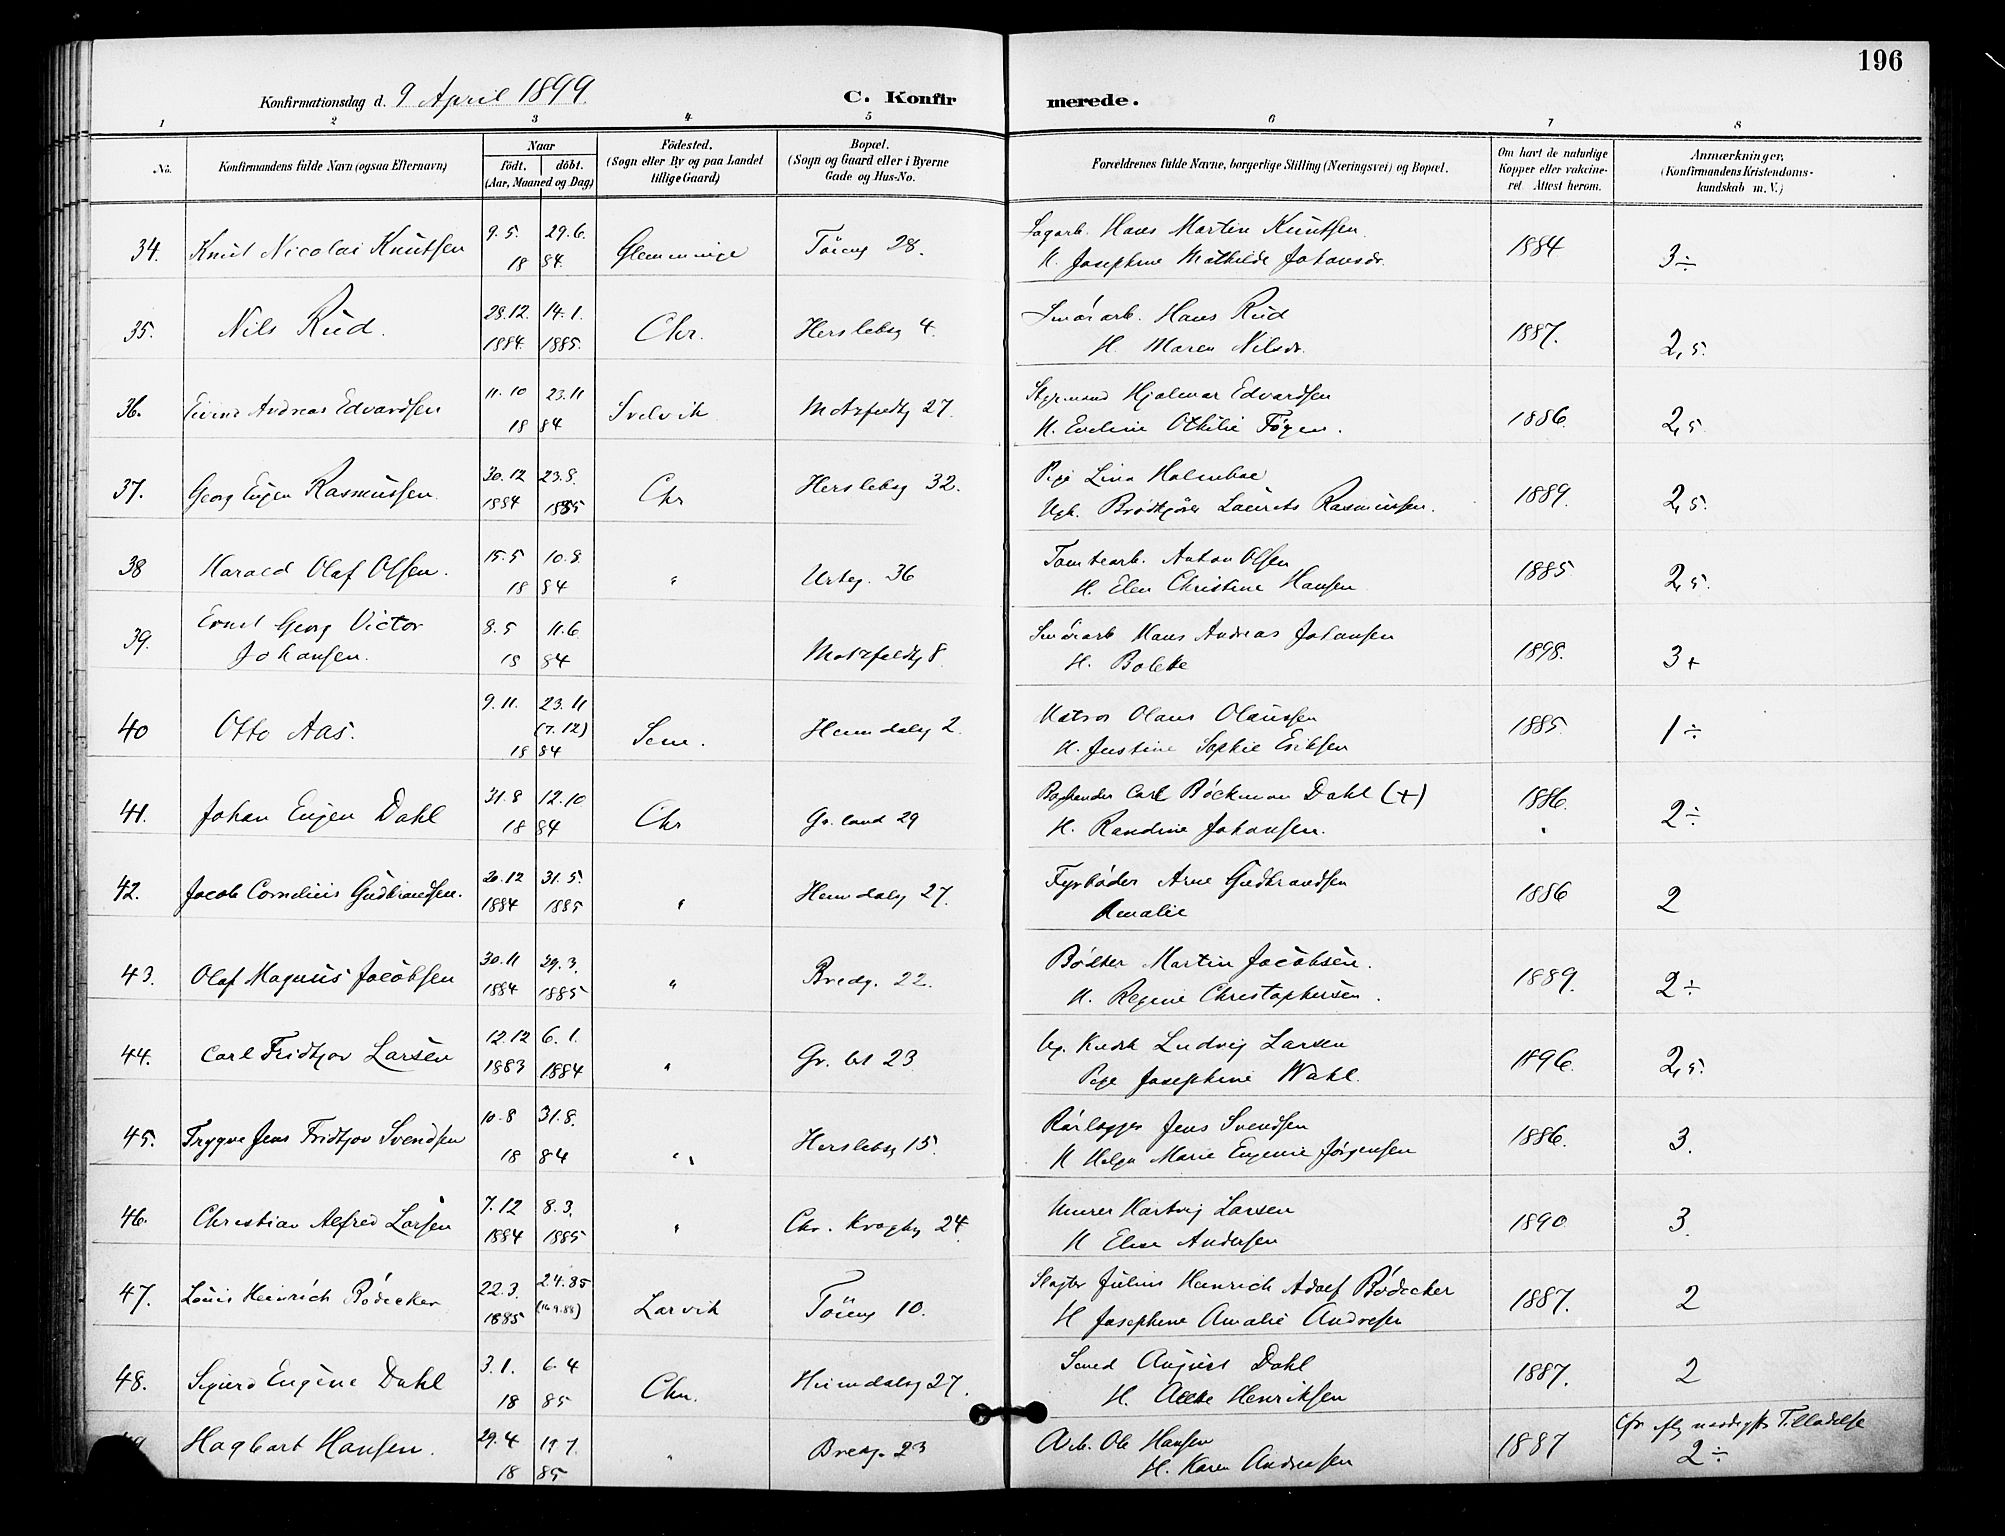 196
Konfirmationsdag d. 9 April 1899. C. Konfirmerede.
1 2 3 4 5 6 7 8
No. Konfirmandens fulde Navn (ogsaa Efternavn) Naar født, døbt. (Aar, Maaned og Dag) Fødested. (Sogn eller By og paa Landet tillige Gaard) Bopæl. (Sogn og Gaard eller i Byerne Gade og Hus-No. Forældrenes fulde Navne, borgerlige Stilling (Næringsvei) og Bopæl. Om havt de naturlige Kopper eller vakcineret. Attest herom. Anmærkninger. (Konfirmandens Kristendomskundskab m. V.)
34. Knut Nicolai Knutsen 9.5. 29.6. Glemminge Töieng 28. Sagarb. Hans Martin Knutsen 1884 3÷
18 84. H. Josephine Mathilde Johansdr.
35. Nils Rud. 28.12. 14.1. Chr. Herslebsg 4. Hans Rud 1887. 2,5.
1884. 1885. H. Maren Nilsdr.
36. Eivind Andreas Edvardsen 11.10 23.11 Svelvik Motzfeldtg 27. Styrmand Hjalmar Edvardsen 1886. 2,5
18 84 H. Eveline Othilie
37. Georg Eugen Rasmussen. 30.12 23.8. Chr Herslebsg 32. Pige Lina Holmboe 1889. 2,5.
1884 1885 Ugk. Laurits Rasmussen.
38 Harald Olaf Olsen. 15.5 10.8. " Urteg. 36 Tomtearb. Anton Olsen 1885 2,5.
18 84 H. Elen Christine Hansen
39. Ernst Georg Victor 8.5 11.6 Motzfeldtg 8. Hans Andreas Johansen 1898. 3+
Johansen. 18 84 H. Bolette
40 Otto Aas. 9.11. 23.11 Sem. Heimdalsg 2. Matros Olaus Olaussen 1885 1÷
(7.12)
18 84 H. Justine Sophie Eriksen
41. Johan Eugen Dahl 31.8 12.10 Chr Gr.land 29 Carl Böckman Dahl (+) 1886. 2÷
18 84 H. Randine Johansen.
42. Jacob Cornelius Gudbrandsen. 20.12 31.5. " Heimdalsg 27. Fyrbøder Arne Gudbrandsen 1886 2
1884 1885 Amalie
43. Olaf Magnus Jacobsen 30.11 29.3. " Bredg. 22. Bødker Martin Jacobsen. 1889. 2÷
1884 1885 H. Regine Christophersen.
44. Carl Fridtjov Larsen 12.12 6.1. " 23 Ug. Kudsk Ludvig Larsen 1896. 2,5.
1883 1884 Pige Josephine Wahl.
45. Trygve Jens Fridtjov Svendsen 10.8 31.8. " Herslebsg 15. Rørlægger Jens Svendsen 1886. 3.
18 84 H Helga Marie Eugenie Jørgensen
46. Christian Alfred Larsen 7.12 8.3. " Chr. Kroghsg 24. Murer Hartvig Larsen 1890 3.
1884 1885 H Elise Andersen
47. Louis Heinrich Bödecker 22.3. 2.4.85 Larvik Töieng 10. Julius Heinrich Adolf Bödecker 1887. 2
1885 H Josephine Amalie Andresen
48. Sigurd Eugene Dahl 3.1. 6.4 Chr. Heimdalsg 27. Smed August Dahl 1887. 2
18 85 H. Henriksen
Hagbart Hansen. 29.4 19.7. " Bredg. 23 Arb. Ole Hansen 1887 Tilladelse
18 85 H. Karen Andresen 2÷